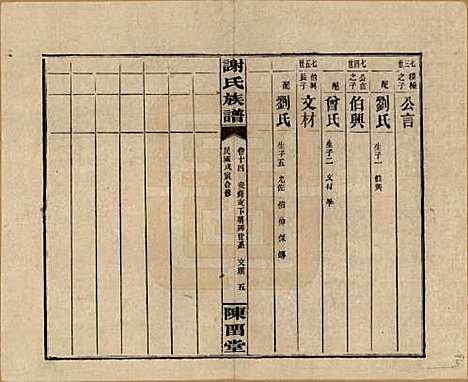 七三世 積極之子 公言
配 劉氏 生子一 伯興
七四世 公言之子 伯興
配 曾氏 生子二 文材 學
七五世 伯興長子 文材
配 劉氏 生子五 光佐 佑 伸 保 傳
謝氏族譜
卷十四 支下 世系 文 五
民國戊寅合修
陳留堂